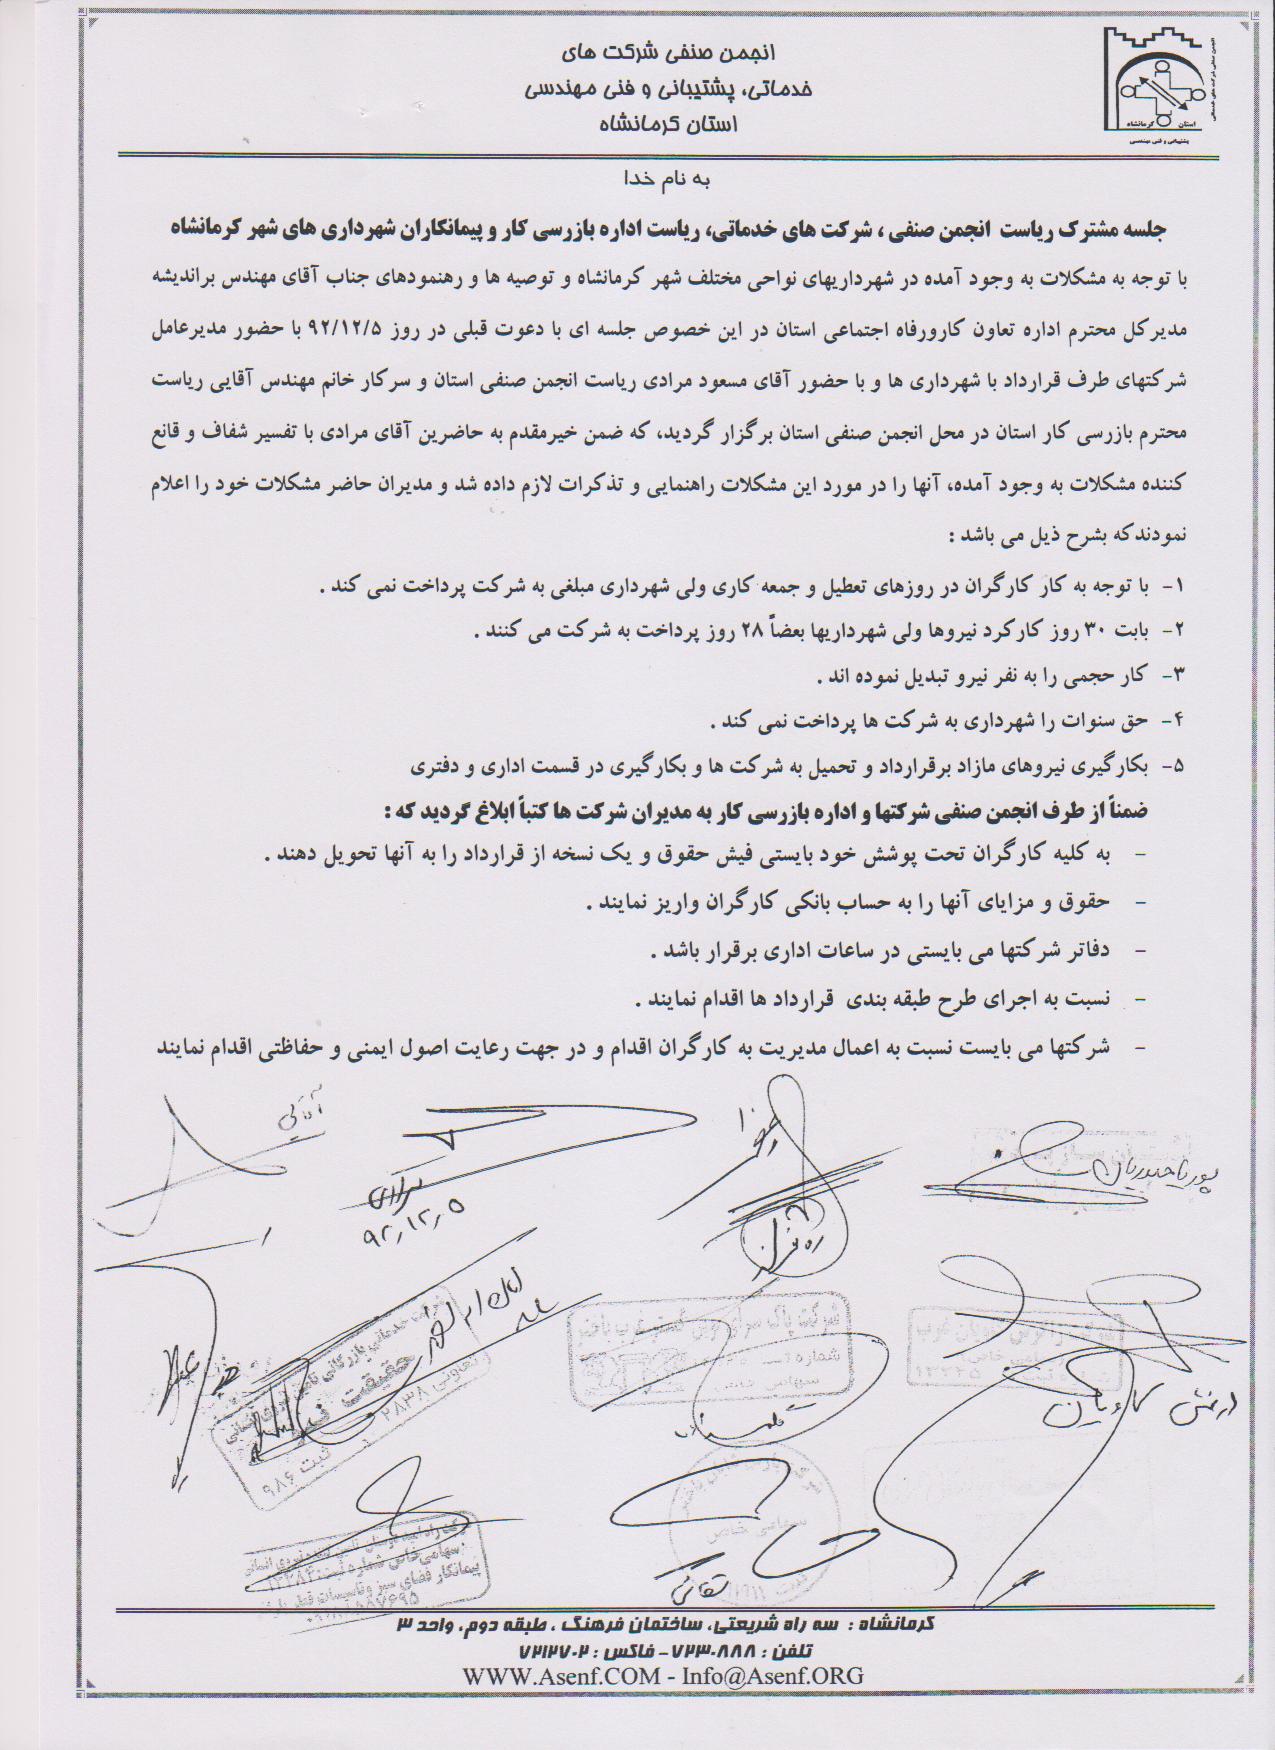 انجمن صنفی شرکت های
خدماتی، پشتیبانی و فنی مهندسی
استان کرمانشاه
استان کرمانشاه
پشتیبانی و فنی مهندسی
به نام خدا
جلسه مشترک ریاست انجمن صنفی ، شرکت های خدماتی، ریاست اداره بازرسی کار و پیمانکاران شهرداری های شهر کرمانشاه
با توجه به مشکلات به وجود آمده در شهرداریهای نواحی مختلف شهر کرمانشاه و توصیه ها و رهنمودهای جناب آقای مهندس براندیشه
مدیرکل محترم اداره تعاون کارورفاه اجتماعی استان در این خصوص جلسه ای با دعوت قبلی در روز ۹۲/۱۲/۵ با حضور مدیرعامل
شرکتهای طرف قرارداد با شهرداری ها و با حضور آقای مسعود مرادی ریاست انجمن صنفی استان و سرکار خانم مهندس آقایی ریاست
محترم بازرسی کار استان در محل انجمن صنفی استان برگزار گردید، که ضمن خیرمقدم به حاضرین آقای مرادی با تفسیر شفاف و قانع
کننده مشکلات به وجود آمده، آنها را در مورد این مشکلات راهنمایی و تذکرات لازم داده شد و مدیران حاضر مشکلات خود را اعلام
نمودندکه بشرح ذیل می باشد :
۱- با توجه به کار کارگران در روزهای تعطیل و جمعه کاری ولی شهرداری مبلغی به شرکت پرداخت نمی کند .
۲- بابت ۳۰ روز کارکرد نیروها ولی شهرداریها بعضاً ۲۸ روز پرداخت به شرکت می کنند .
۳- کار حجمی را به نفر نیرو تبدیل نموده اند .
۴- حق سنوات را شهرداری به شرکت ها پرداخت نمی کند .
۵- بکارگیری نیروهای مازاد برقرارداد و تحمیل به شرکت ها و بکارگیری در قسمت اداری و دفتری
ضمناً از طرف انجمن صنفی شرکتها و اداره بازرسی کار به مدیران شرکت ها کتباً ابلاغ گردید که :
- به کلیه کارگران تحت پوشش خود بایستی فیش حقوق و یک نسخه از قرارداد را به آنها تحویل دهند .
- حقوق و مزایای آنها را به حساب بانکی کارگران واریز نمایند .
- دفاتر شرکتها می بایستی در ساعات اداری برقرار باشد .
- نسبت به اجرای طرح طبقه بندی قرارداد ها اقدام نمایند .
- شرکتها می بایست نسبت به اعمال مدیریت به کارگران اقدام و در جهت رعایت اصول ایمنی و حفاظتی اقدام نمایند
آقائی
مرادی
۹۲٫۱۲٫۵
شرکت پاک سرای نوین گستر غرب باختر
حقیقت
ثبت ۹۸۶
سهامی خاص
کرمانشاه : سه راه شریعتی، ساختمان فرهنگ ، طبقه دوم، واحد ۳
تلفن : ۷۲۳۰۸۸۸ - فاکس : ۷۲۱۲۷۰۲
WWW.Asenf.COM - Info@Asenf.ORG